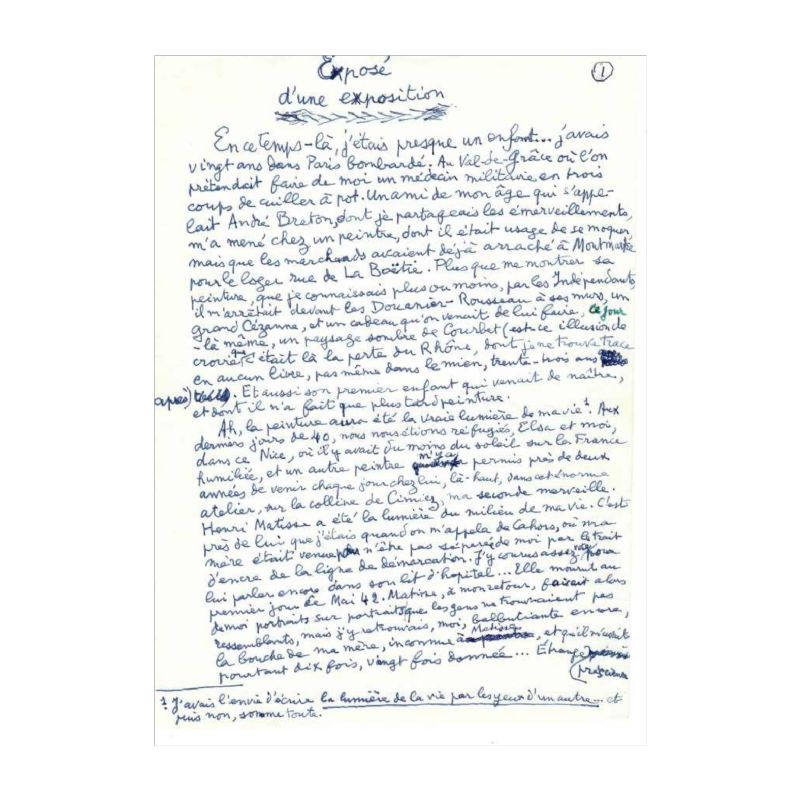 Exposé
1
d'une exposition
En ce temps-là, j'étais presque un enfant... j'avais
vingt ans dans Paris bombardé. Au Val-de-Grâce où l'on
prétendait faire de moi un médecin militaire en trois
coups de cuiller à pot. Un ami de mon âge qui s'appe-
lait André Breton, dont je partageais les émerveillements,
m'a mené chez un peintre, dont il était usage de se moquer
mais que les marchands avaient déjà arraché à Montmartre
pour le loger rue de La Boëtie. Plus que me montrer sa
peinture, que je connaissais plus ou moins, par les Indépendants
il m'arrêtait devant les Douanier-Rousseau à ses murs, un
grand Cézanne, et un cadeau qu'on venait de lui faire, ce jour
là même, un paysage sombre de Courbet (est-ce illusion de
croire que c'était là la perte du Rhône, dont je ne trouve trace
en aucun livre, pas même dans le mien, trente-trois ans
après). Et aussi son premier enfant qui venait de naître,
et dont il n'a fait que plus tard peinture.
Ah, la peinture aura été la vraie lumière de ma vie¹. Aux
derniers jours de 40, nous nous étions réfugiés, Elsa et moi,
dans ce Nice, où il y avait du moins du soleil sur la France
humiliée, et un autre peintre m'a permis près de deux
années de venir chaque jour chez lui, là-haut, dans cet énorme
atelier, sur la colline de Cimiez, ma seconde merveille.
Henri Matisse a été la lumière du milieu de ma vie. C'est
près de lui que j'étais quand on m'appela de Cahors, où ma
mère était venue n'être pas séparée de moi par le trait
d'encre de la ligne de démarcation. J'y courus assez pour
lui parler encore dans son lit d'hôpital... Elle mourut au
premier jour de Mai 42. Matisse, à mon retour, faisait alors
de moi portraits sur portraits que les gens ne trouvaient pas
ressemblants, mais j'y retrouvais, moi, balbutiante encore,
la bouche de ma mère, inconnue à Matisse, et qu'il m'avait
pourtant dix fois, vingt fois donnée... Étrange
prescience
¹ J'avais l'envie d'écrire la lumière de la vie par les yeux d'un autre... et
puis non, somme toute.